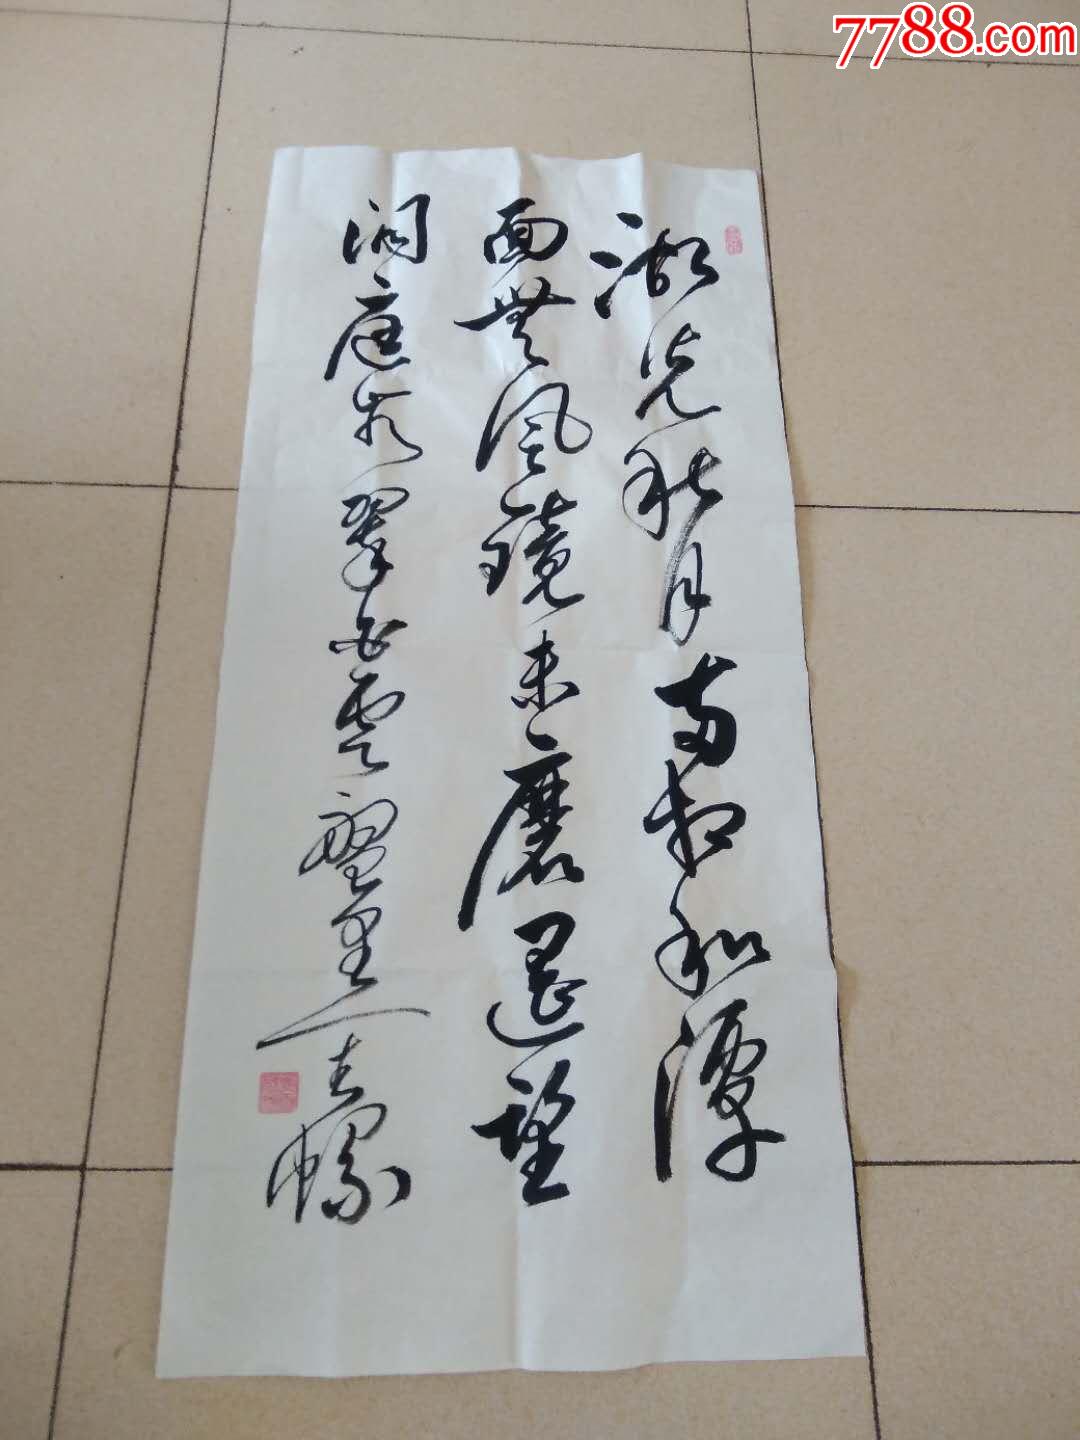 7788.com
湖光秋月两相和潭
面無風鏡未磨遥望
洞庭翠白雲盤里一青螺